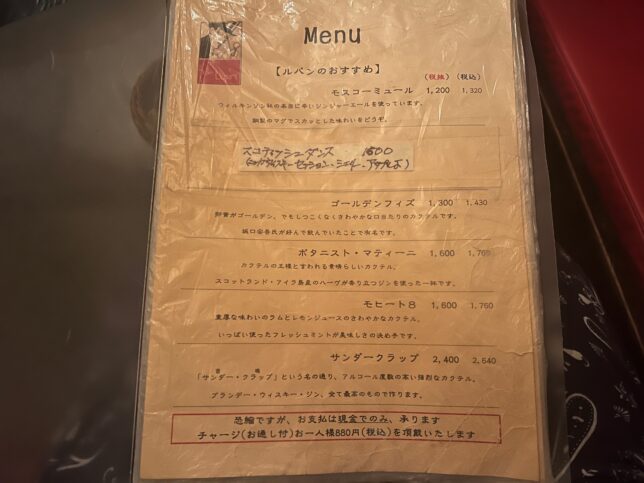 Menu
【ルパンのおすすめ】
(税抜) (税込)
モスコーミュール 1,200 1,320
ウィルキンソン社の本当に辛いジンジャーエールを使っています。
銅製のマグでスカッとした味わいをどうぞ。
スコティッシュダンス 1500
ゴールデンフィズ 1,300 1,430
卵黄がゴールデン、でもしつこくなくさわやかな口当たりのカクテルです。
坂口安吾氏が好んで飲んでいたことで有名です。
ボタニスト・マティーニ 1,600 1,760
カクテルの王様と言われる素晴らしいカクテル。
スコットランド・アイラ島産のハーブが香り立つジンを使った一杯です。
モヒート8 1,600 1,760
重厚な味わいのラムとレモンジュースのさわやかなカクテル。
いっぱい使ったフレッシュミントが美味しさの決め手です。
サンダークラップ 2,400 2,640
雷鳴
「サンダー・クラップ」という名の通り、アルコール度数の高い強烈なカクテル。
ブランデー・ウィスキー・ジン、全て最高のもので作ります。
恐縮ですが、お支払は現金でのみ、承ります
チャージ(お通し付)お一人様880円(税込)を頂戴いたします